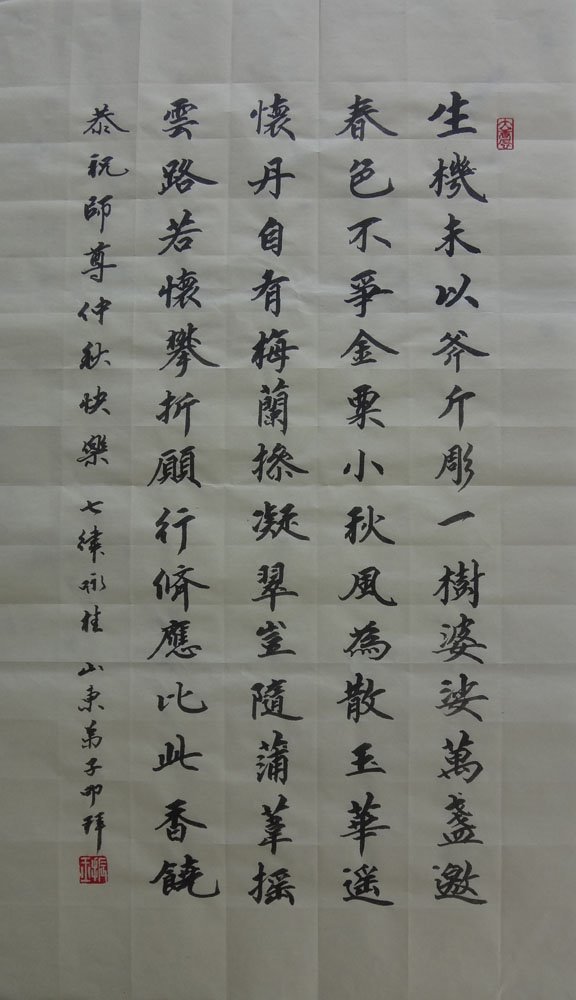 生機未以斧斤彫一樹婆娑萬盞邀
春色不爭金粟小秋風為散玉華遥
懷丹自有梅蘭操凝翠豈隨蒲葦摇
雲路若懷攀折願行脩應比此香饒
恭祝師尊仲秋快樂 七律詠桂 山東弟子叩拜